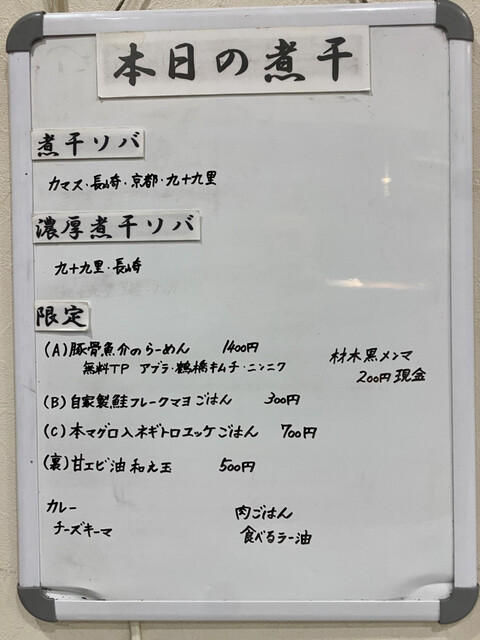 本日の煮干
煮干ソバ
カマス・長崎・京都・九十九里
濃厚煮干ソバ
九十九里・長崎
限定
(A)豚骨魚介のらーめん 1400円
無料TP アブラ・鶴橋キムチ・ニンニク
材木黒メンマ
200円 現金
(B)自家製鮭フレークマヨごはん 300円
(C)本マグロ入ネギトロユッケごはん 700円
(裏)甘エビ油和え玉 500円
カレー
チーズキーマ
肉ごはん
食べるラー油